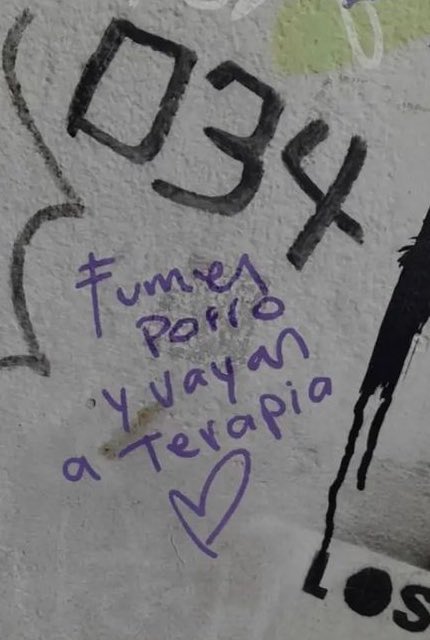 034
Fumen
porro
y vayan
a Terapia
LOS